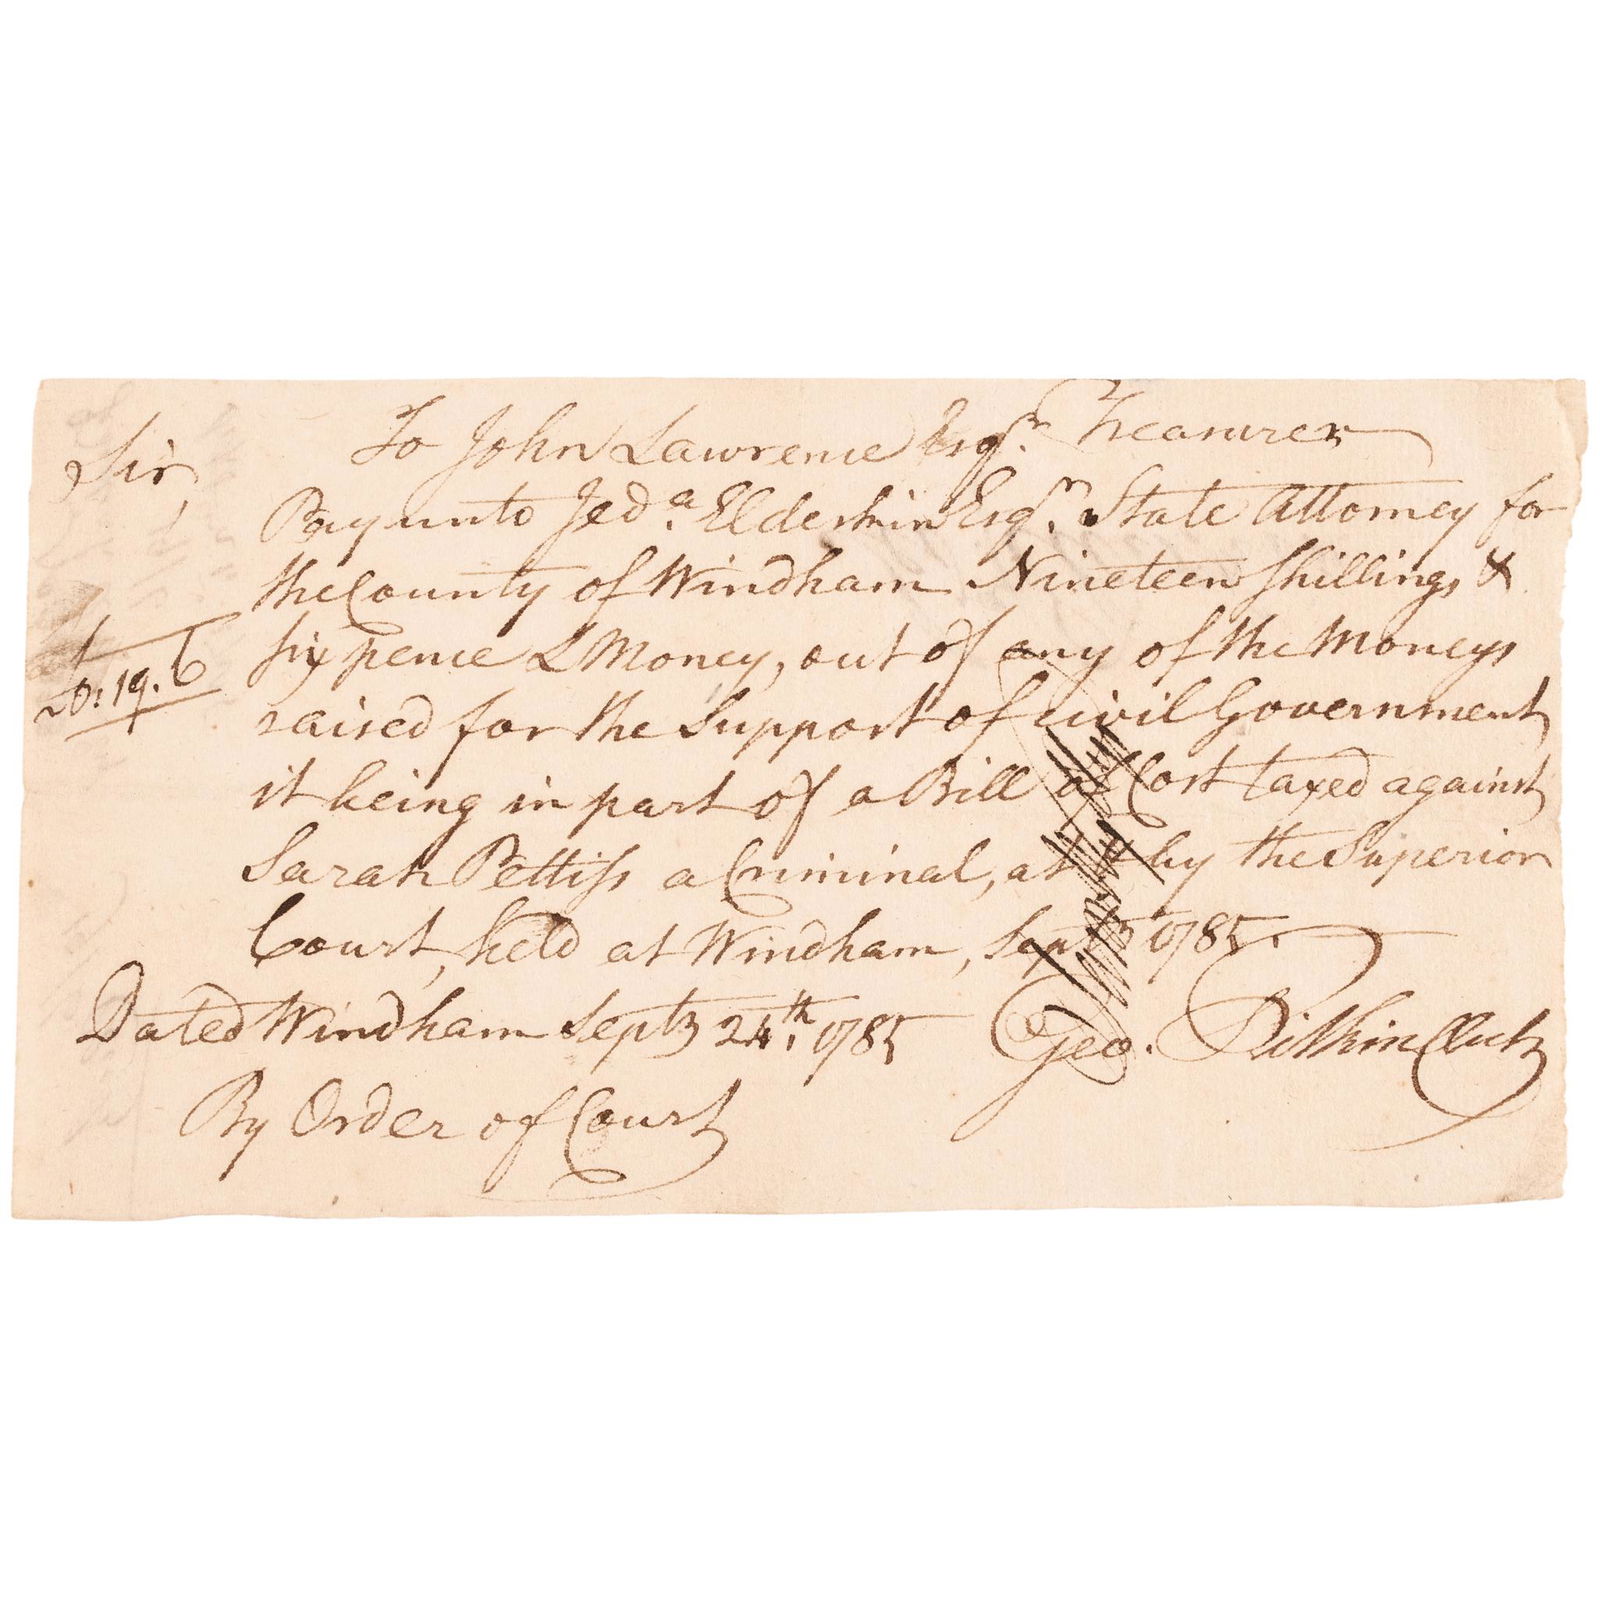 To John Lawrence Esqr. Treasurer
Sir,
Pay unto Jeda. Elderkin Esqr. State Attorney for
the County of Windham Nineteen Shillings &
six pence L Money, out of any of the Moneys
£0:19.6
raised for the Support of Civil Government
it being in part of a Bill of Cost taxed against
Sarah Pettiss a Criminal, at by the Superior
Court, held at Windham, Sept 1785.
Dated Windham Septr 24th. 1785 Geo. Pitkin Clerk
By Order of Court